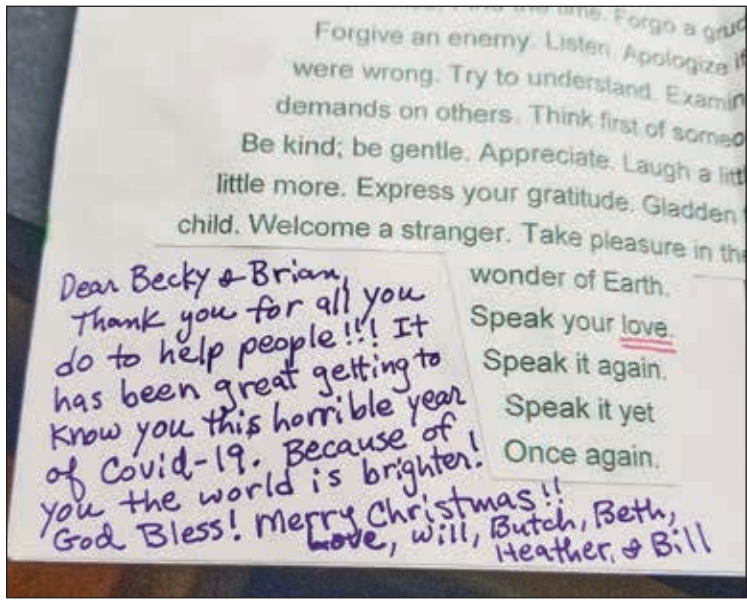 the time. Forgo a
Forgive an enemy. Listen. Apologize if
were wrong. Try to understand.
demands on others. Think first of
Be kind; be gentle. Appreciate. Laugh a
little more. Express your gratitude. Gladden
child. Welcome a stranger. Take pleasure in the
wonder of Earth.
Speak your love.
Speak it again.
Speak it yet
Once again.
Dear Becky & Brian,
Thank you for all you
do to help people!!! It
has been great getting to
know you this horrible year
of Covid-19. Because of
you the world is brighter!
God Bless! Merry Christmas!!
Love, Will, Butch, Beth,
Heather, & Bill